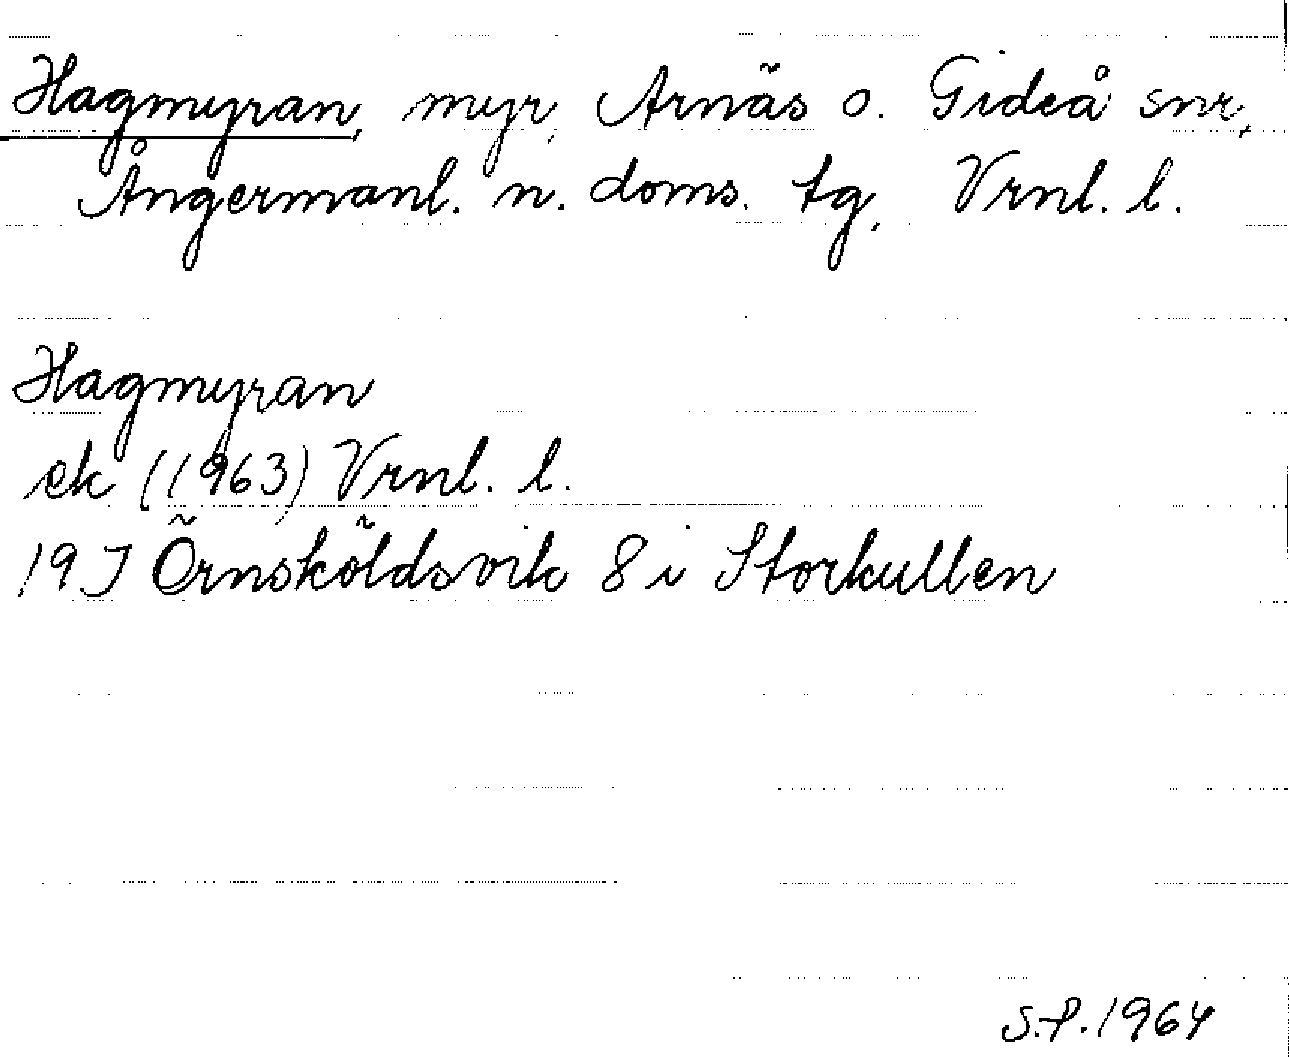 Hagmyran, myr, Arnäs o. Gideå snr,
Ångermanl. n. doms. tg, Vrnl. l.
Hagmyran
ek (1963) Vrnl. l.
19 J Örnsköldsvik 8 i Storkullen
S.f. 1964